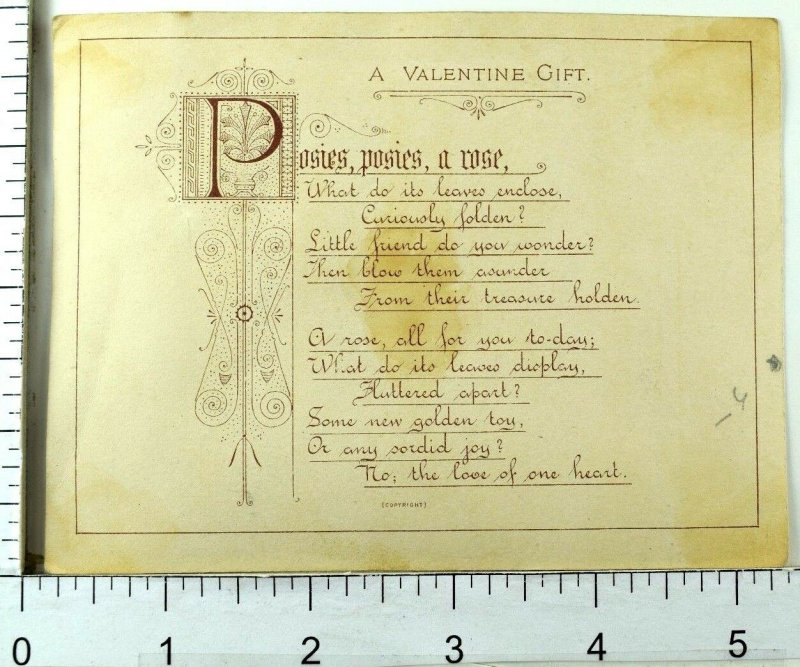 A VALENTINE GIFT.
Posies, posies, a rose,
What do its leaves enclose,
Curiously folden?
Little friend do you wonder?
Then blow them asunder
From their treasure holden.
A rose, all for you to-day;
What do its leaves display,
Fluttered apart?
Some new golden toy,
Or any sordid joy?
No; the love of one heart.
(COPYRIGHT)
4
0 1 2 3 4 5